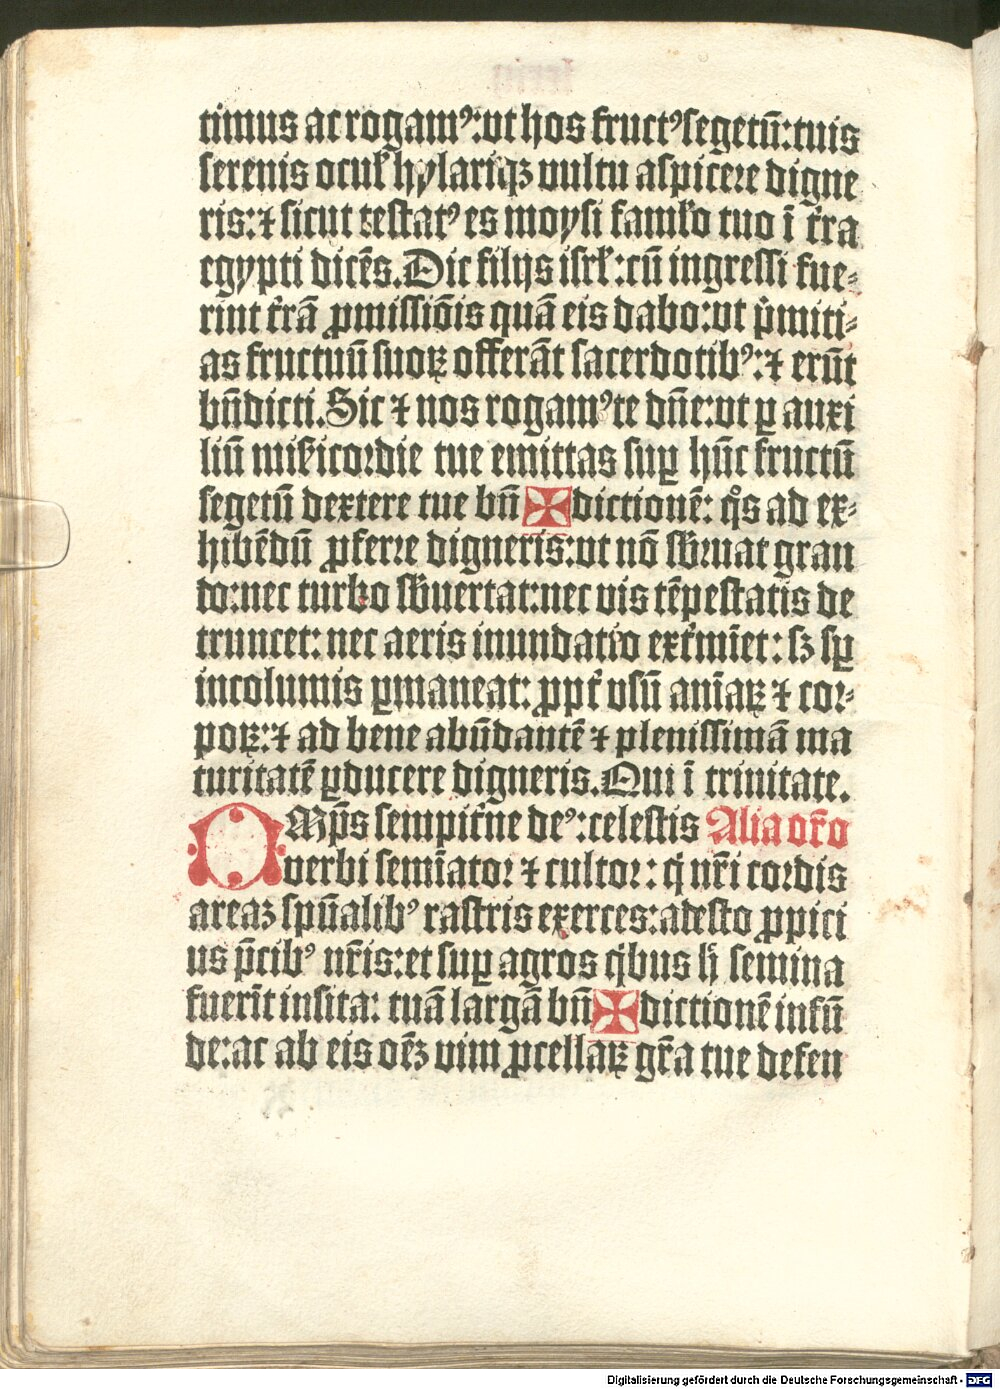 timus ac rogamꝰ: vt hos fructꝰ segetū: tuis
serenis ocul̕ hylariqꝫ vultu aspicere digne
ris: ⁊ sicut testatꝰ es moysi famĺo tuo ī t̄ra
egypti dicēs. Dic filijs isrĺ: cū ingressi fue⸗
rint t̄rā ꝓmissiōis quā eis dabo: vt p̄miti⸗
as fructuū suoꝝ offerāt sacerdotibꝰ: ⁊ erūt
bn̄dicti. Sic ⁊ nos rogamꝰ te dn̄e: vt ꝑ auxi
liū mīẜicordie tue emittas suꝑ hūc fructū
segetū dextere tue bn̄ ✠ dictionē: q̊s ad ex⸗
hibēdū ꝓferre digneris: vt nō sb̄ruat gran
do: nec turbo sb̄uertat: nec vis tēpestatis de
truncet: nec aeris inundatio ext̄mīet: sꝫ sꝑ
incolumis ꝑmaneat: ꝓpt̄ vsū anīaꝝ ⁊ cor⸗
poꝝ: ⁊ ad bene abūdantē ⁊ plenissimā ma
turitatē ꝑducere digneris. Qui ī trinitate.
OMp̄s sempit̄ne deꝰ: celestis Alia or̄o
verbi semīator ⁊ cultor: q̄ nr̄i cordis
areaꝫ spūalibꝰ rastris exerces: adesto ꝓpici
us p̄cibꝰ nr̄is: et suꝑ agros qͥbus hͥ semina
fuerīt insita: tuā largā bn̄ ✠ dictionē infū
de: ac ab eis oēꝫ vim ꝓcellaꝝ gr̄a tue defen
Digitalisierung gefördert durch die Deutsche Forschungsgemeinschaft - DFG